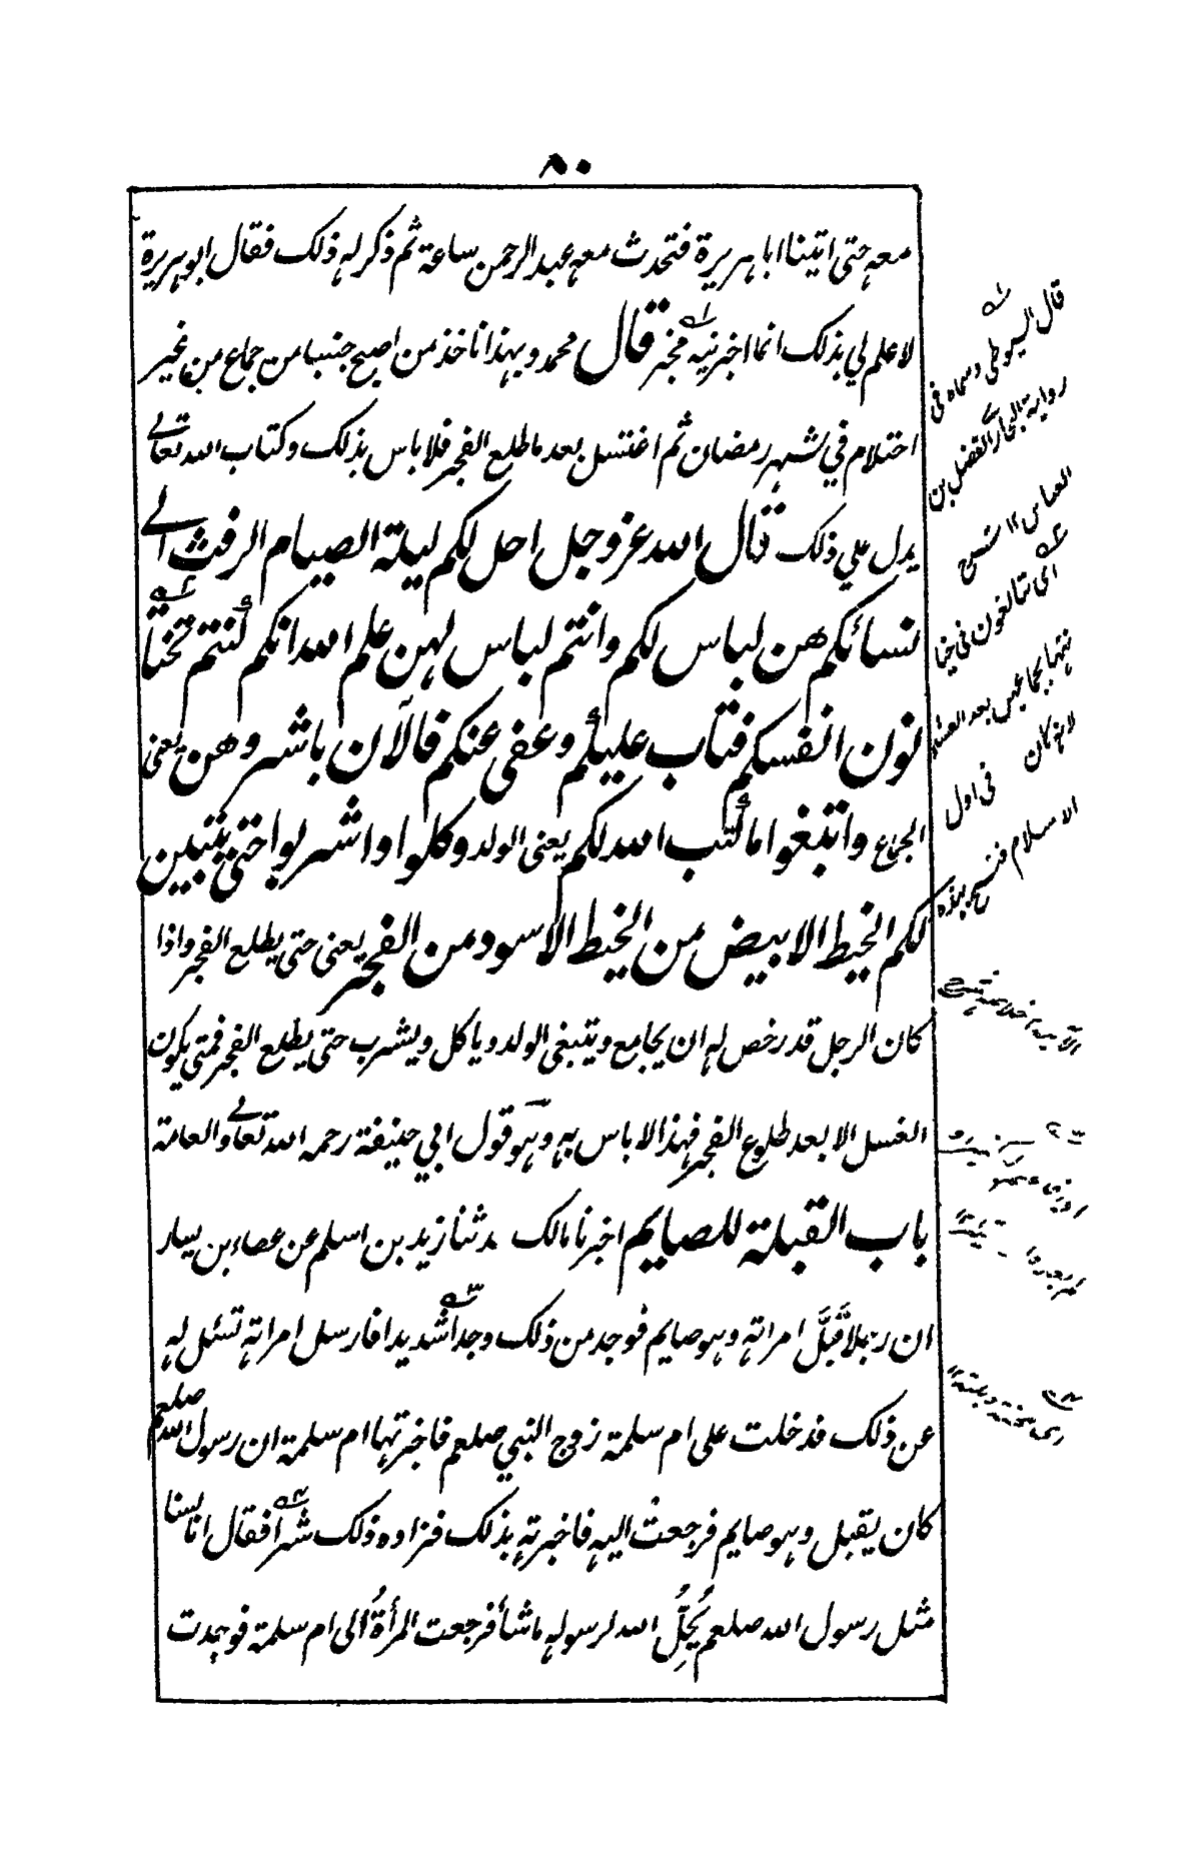 ٨٠
معه حتى اتينا ابا هريرة فتحدث معه عبد الرحمن ساعة ثم ذكر له ذلك فقال ابو هريرة
لا علم لي بذلك انما اخبرنيه مخبر قال محمد و بهذا ناخذ من اصبح جنبا من جماع من غير
احتلام في شهر رمضان ثم اغتسل بعد ما طلع الفجر فلا باس بذلك و كتاب الله تعالى
يدل علي ذلك قال الله عز و جل احل لكم ليلة الصيام الرفث الى
نسائكم هن لباس لكم و انتم لباس لهن علم الله انكم كنتم تختا
نون انفسكم فتاب عليكم و عفى عنكم فالآن باشروهن يعني
الجماع وابتغوا ما كتب الله لكم يعنى الولد وكلوا واشربوا حتى يتبين
لكم الخيط الابيض من الخيط الاسود من الفجر يعنى حتى يطلع الفجر واذا
كان الرجل قد رخص له ان يجامع ويتبغى الولد و ياكل ويشرب حتى يطلع الفجر فمتى يكون
الغسل الا بعد طلوع الفجر فهذا لا باس به و هو قول ابي حنيفة رحمه الله تعالى والعامة
باب القبلة للصايم اخبرنا مالك حدثنا زيد بن اسلم عن عطاء بن يسار
ان رجلا قبَّل امراته وهو صايم فوجد من ذلك وجدا شديدا فارسل امراته تسئل له
عن ذلك فدخلت على ام سلمة زوج النبي صلعم فاخبرتها ام سلمة ان رسول الله صلعم
كان يقبل وهو صايم فرجعت اليه فاخبرته بذلك فزاده ذلك شرا فقال انا لسنا
مثل رسول الله صلعم يُحِلُّ الله لرسوله ما شأ فرجعت المرأةُ الى ام سلمة فوجدت
قال السيوطى وسماه فى
رواية البخارى الفضل بن
العباس ١٢
اى تبالغون فى خيا
نتها بجماعهن بعد العشاء
لانه كان فى اول
الاسلام فنسخ بهذه